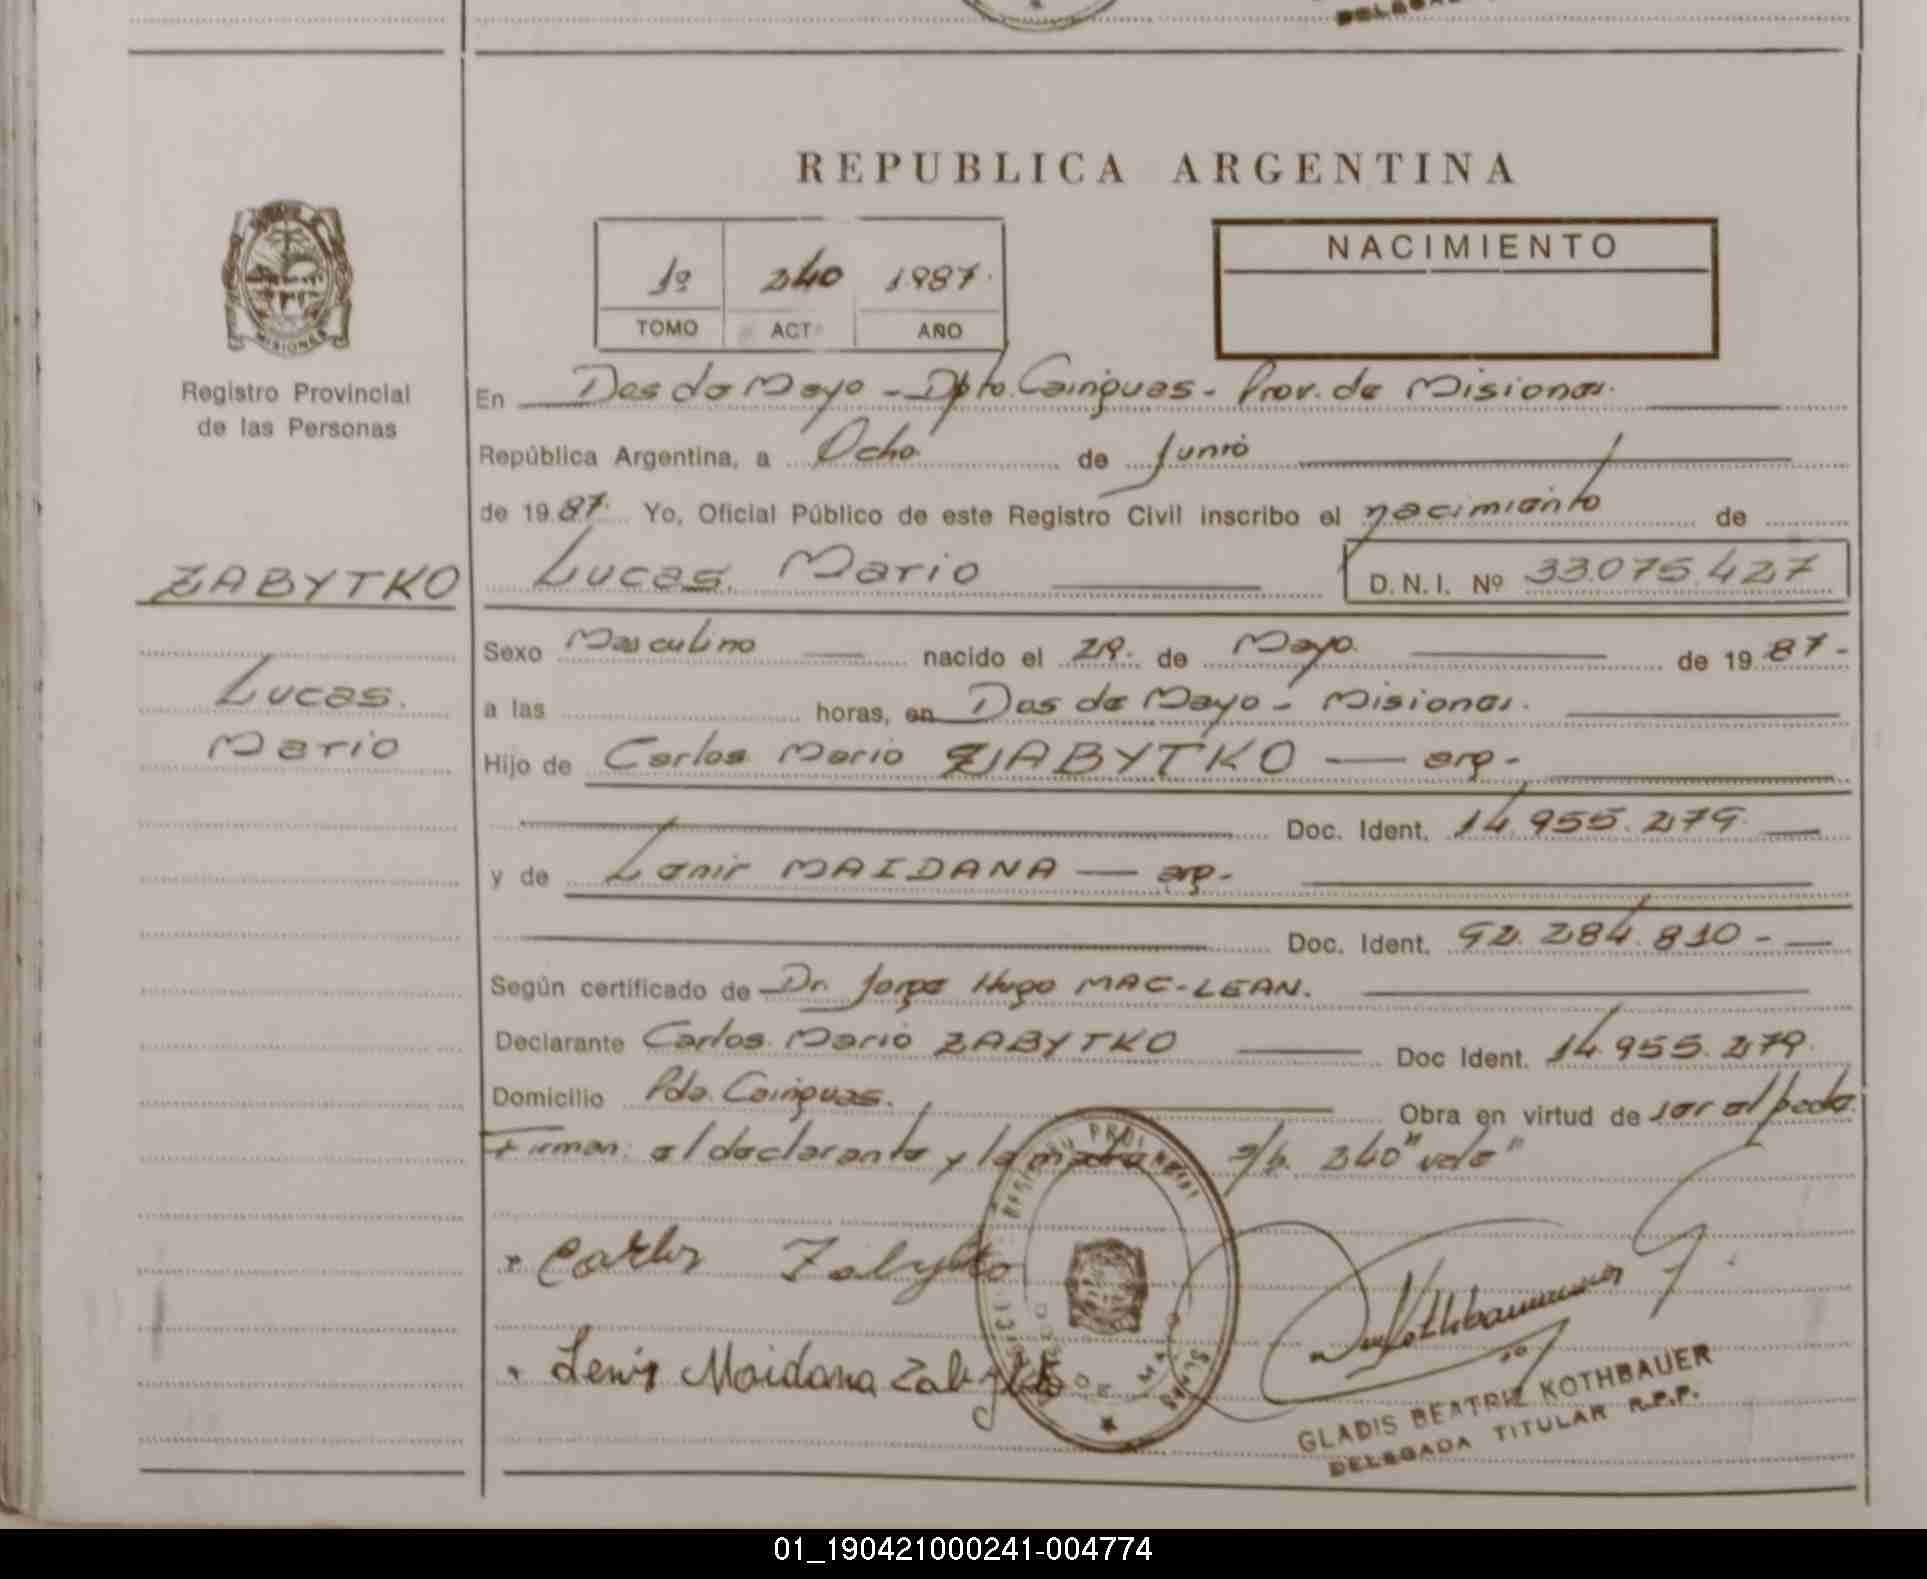 REPUBLICA ARGENTINA
1º 240 1987.
TOMO ACT AÑO
NACIMIENTO
MISIONES
Registro Provincial
de las Personas
En Dos de Mayo - Dpto. Cainguas - Prov. de Misiones.
República Argentina, a Ocho de Junio
de 1987. Yo, Oficial Público de este Registro Civil inscribo el nacimiento de
ZABYTKO Lucas Mario D.N.I. Nº 33.075.427
Sexo Masculino nacido el 29. de Mayo. de 1987-
Lucas. a las horas, en Dos de Mayo - Misiones.
Mario Hijo de Carlos Mario ZABYTKO — arg-
Doc. Ident. 14.955.279
y de Lenir MAIDANA — arg-
Doc. Ident. 92.284.810-
Según certificado de Dr. Jorge Hugo MAC-LEAN.
Declarante Carlos Mario ZABYTKO Doc Ident. 14.955.279.
Domicilio Pdo. Cainguas. Obra en virtud de
Firman: el declarante y la madre s/b. 240 "vale"
Carlos Zabytko
Lenir Maidana Zabytko
GLADIS BEATRIZ KOTHBAUER
DELEGADA TITULAR R.P.P.
01_190421000241-004774